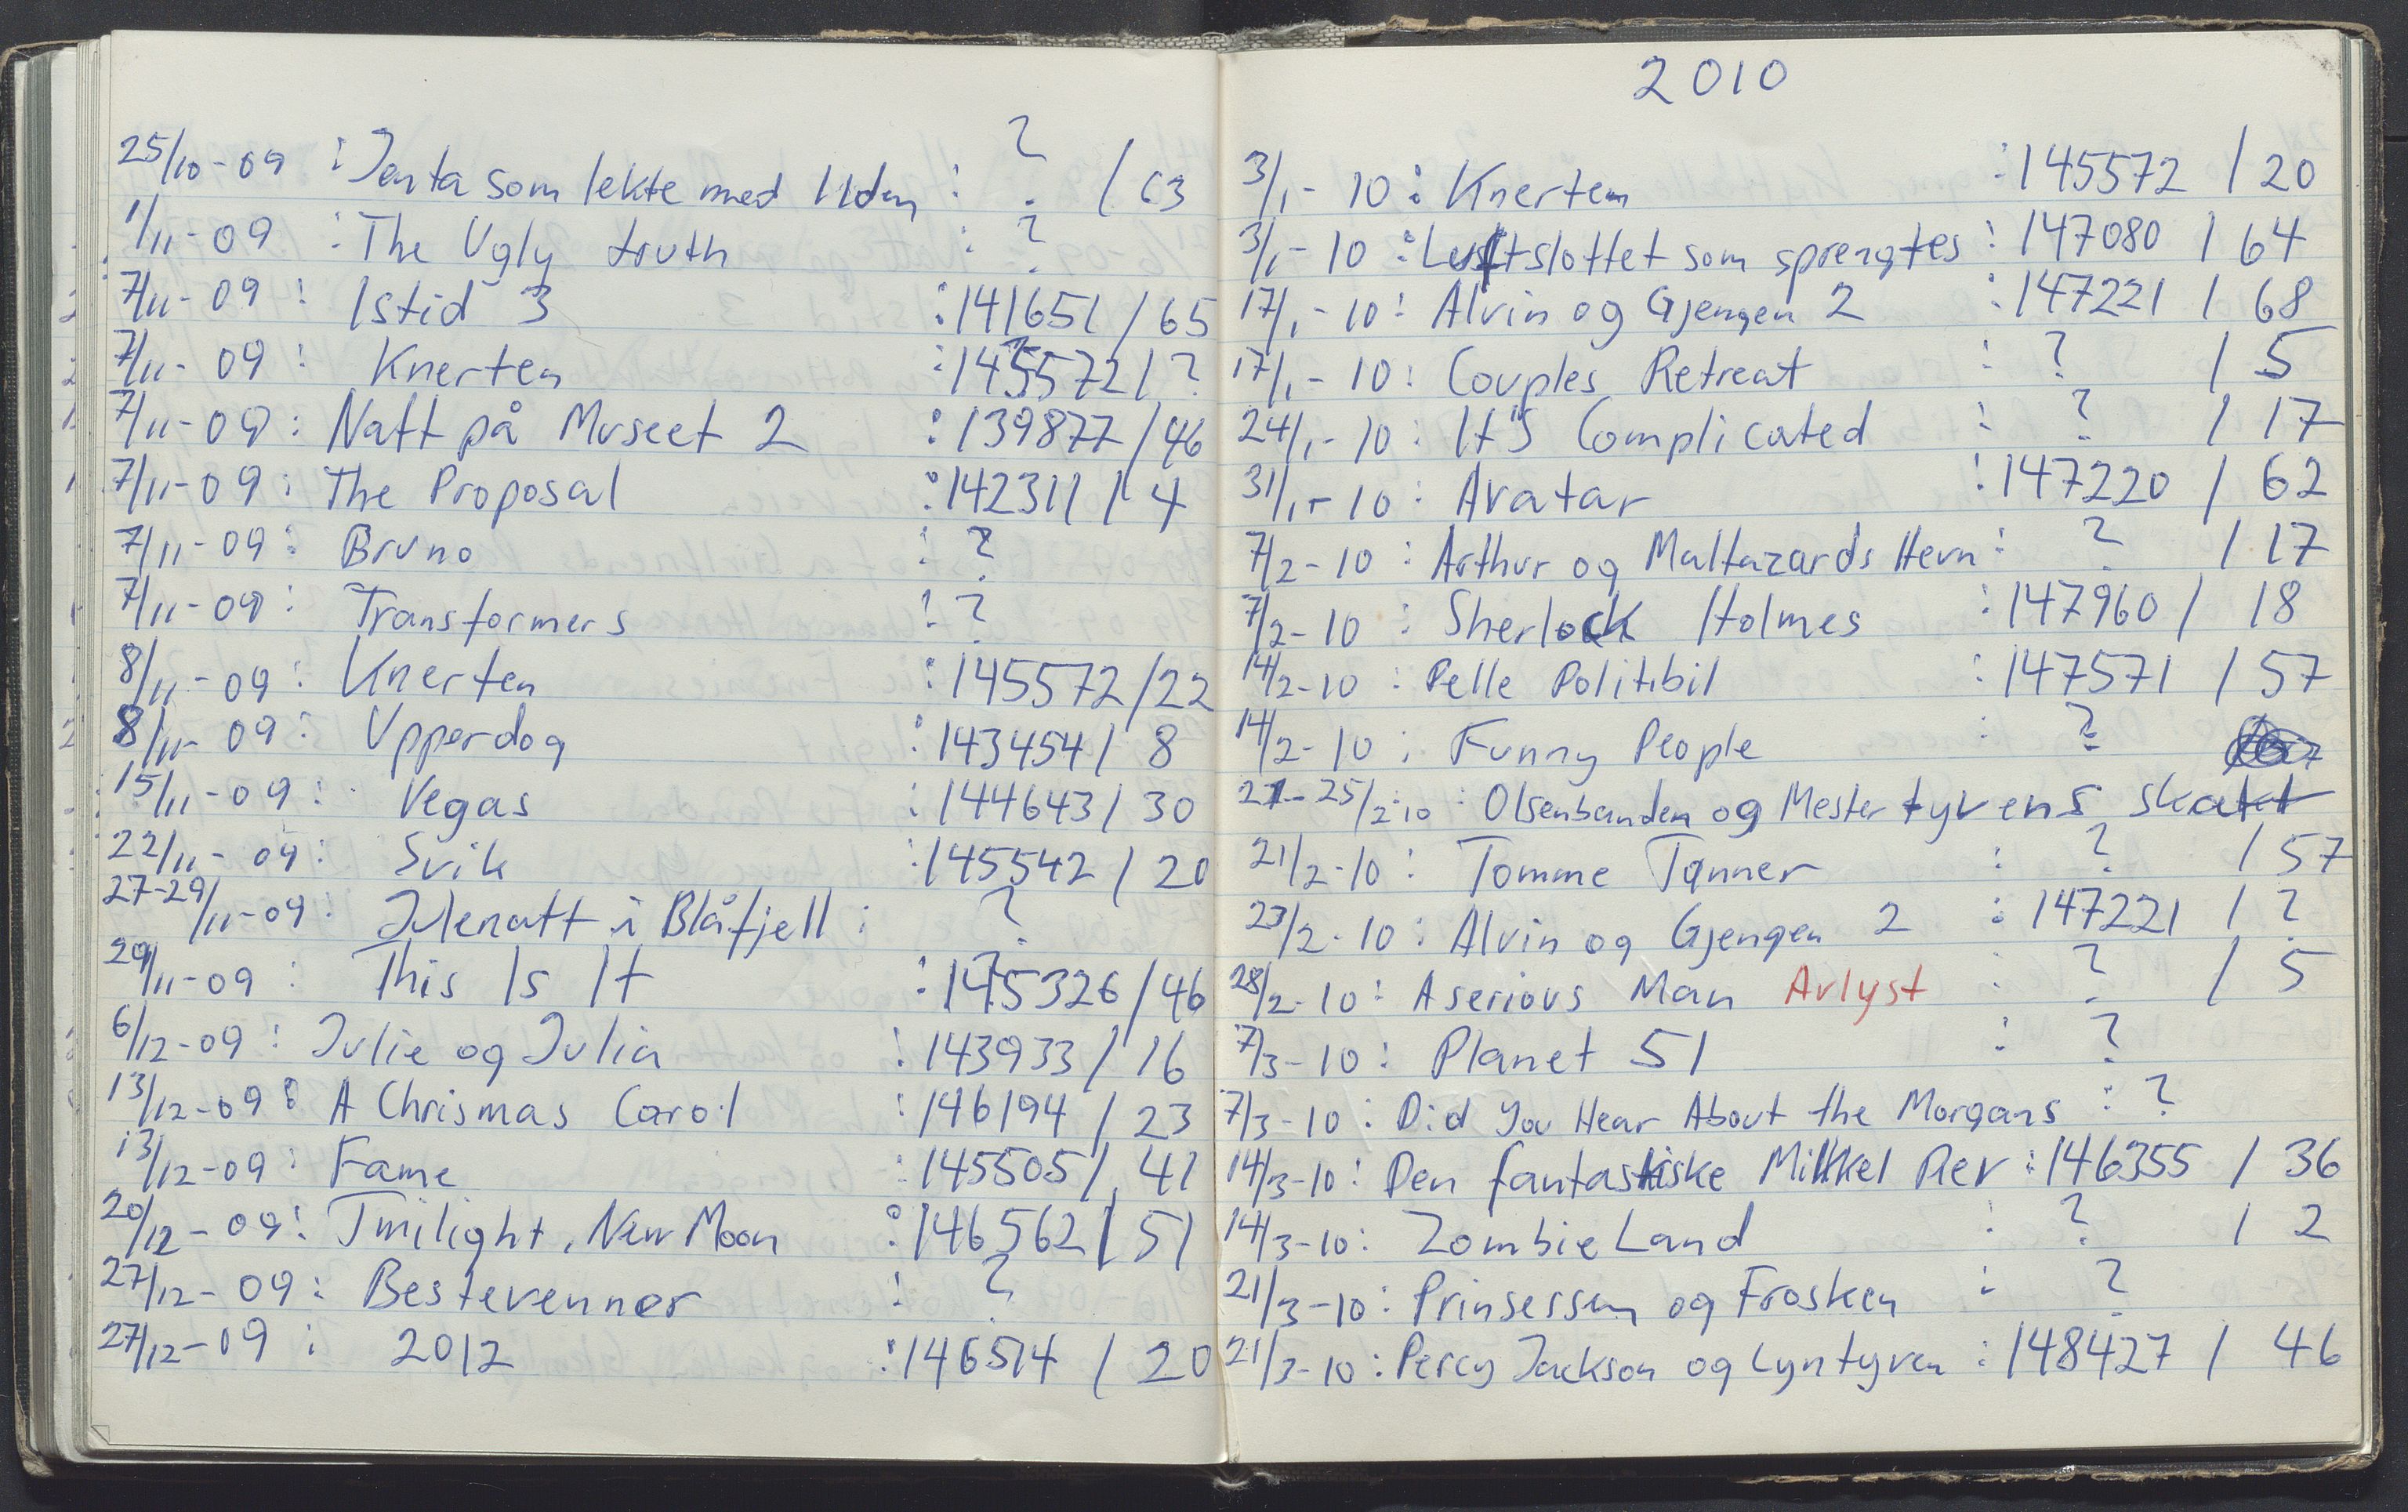 25/10-09 : Jenta som lekte med Ilden : ? / 63
1/11-09 : The Ugly truth : ?
7/11-09 : Istid 3 : 141651 / 65
7/11-09 : Knerten : 145572 / ?
7/11-09 : Natt på Museet 2 : 139877 / 46
7/11-09 : The Proposal : 142311 / 4
7/11-09 : Bruno : ?
7/11-09 : Transformers : ?
8/11-09 : Knerten : 145572 / 22
8/11-09 : Upperdog : 143454 / 8
15/11-09 : Vegas : 144643 / 30
22/11-09 : Svik : 145542 / 20
27-29/11-09 : Julenatt i Blåfjell : ?
29/11-09 : This Is It : 145326 / 46
6/12-09 : Julie og Julia : 143933 / 16
13/12-09 : A Chrismas Carol : 146194 / 23
13/12-09 : Fame : 145505 / 41
20/12-09 : Twilight, New Moon : 146562 / 51
27/12-09 : Bestevenner : ?
27/12-09 : 2012 : 146514 / 20
2010
3/1-10 : Knerten : 145572 / 20
3/1-10 : Luftslottet som sprengtes : 147080 / 64
17/1-10 : Alvin og Gjengen 2 : 147221 / 68
17/1-10 : Couples Retreat : ? / 5
24/1-10 : It's Complicated : ? / 17
31/1-10 : Avatar : 147220 / 62
7/2-10 : Arthur og Maltazards Hevn : ? / 17
7/2-10 : Sherlock Holmes : 147960 / 18
14/2-10 : Pelle Politibil : 147571 / 57
14/2-10 : Funny People : ?
21-25/2-10 : Olsenbanden og Mestertyvens skatt
21/2-10 : Tomme Tønner : ? / 57
23/2-10 : Alvin og Gjengen 2 : 147221 / ?
28/2-10 : A serious Man Avlyst : ? / 5
7/3-10 : Planet 51 : ?
7/3-10 : Did You Hear About the Morgans : ?
14/3-10 : Den fantastiske Mikkel Rev : 146355 / 36
14/3-10 : Zombie Land : ? / 2
21/3-10 : Prinsessen og Frosken : ?
21/3-10 : Percy Jackson og Lyntyven : 148427 / 46